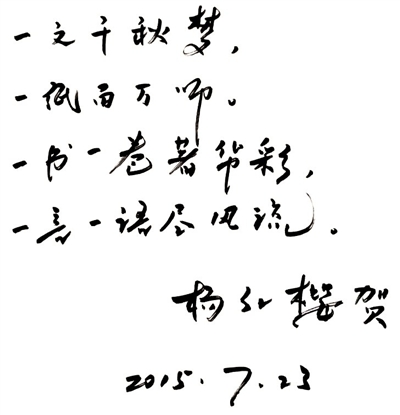 一文千秋梦，
一纸百万师。
一书一卷著华彩，
一言一语尽风流。
杨红樱贺
2015.7.23